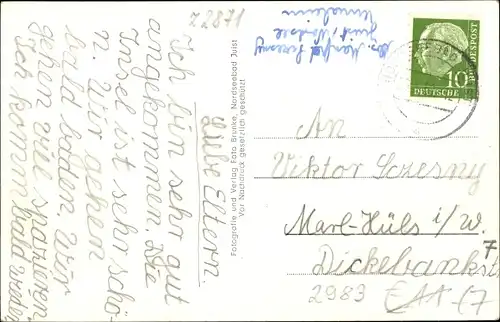 z 2871
Abs. Manfred Sczesny
Juist, Nordsee
Liebe Eltern.
Ich bin sehr gut
angekommen. Die
Insel ist sehr schö-
n. Wir gehen
bald baden wir
gehen viel spazieren
Ich komm bald wieder
Fotografie und Verlag Foto Brunke, Nordseebad Juist
Vor Nachdruck gesetzlich geschützt
10
DEUTSCHE
BUNDESPOST
An
Viktor Sczesny
Marl-Hüls i/W.
Dickebankst
7
2983